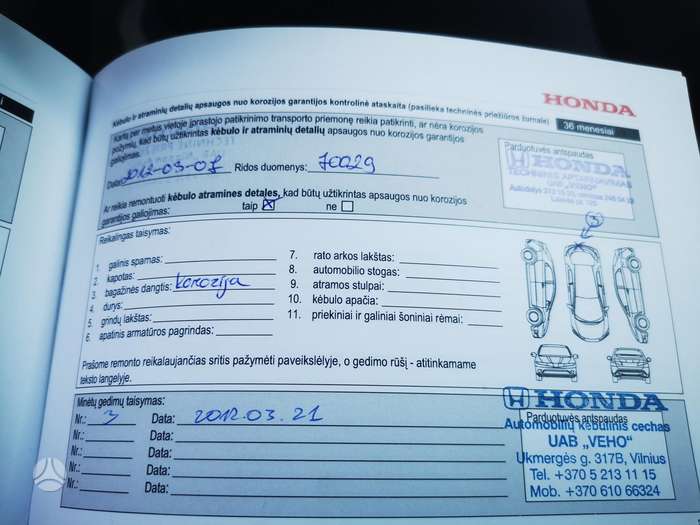 HONDA
Kėbulo ir atraminių detalių apsaugos nuo korozijos garantijos kontrolinė ataskaita (pasilieka techninės priežiūros žurnale)
36 menesiai
Kartą per metus vietoje įprastojo patikrinimo transporto priemonę reikia patikrinti, ar nėra korozijos
požymių, kad būtų užtikrintas kėbulo ir atraminių detalių apsaugos nuo korozijos garantijos
galiojimas.
Data: 2012-03-07 Ridos duomenys: 70029
Parduotuvės antspaudas
HONDA
UAB „VEHO"
Ar reikia remontuoti kėbulo atramines detales, kad būtų užtikrintas apsaugos nuo korozijos
garantijos galiojimas: taip ne
3
Reikalingas taisymas:
1. galinis spamas:
2. kapotas:
3. bagažinės dangtis: korozija
4. durys:
5. grindų lakštas:
6. apatinis armatūros pagrindas:
7. rato arkos lakštas:
8. automobilio stogas:
9. atramos stulpai:
10. kėbulo apačia:
11. priekiniai ir galiniai šoniniai rėmai:
Prašome remonto reikalaujančias sritis pažymėti paveikslėlyje, o gedimo rūšį - atitinkamame
teksto langelyje.
Minėtų gedimų taisymas:
Nr.: 3 Data: 2012.03.21
Nr.: Data:
Nr.: Data:
Nr.: Data:
Nr.: Data:
HONDA
Parduotuvės antspaudas
Automobilių kėbulinis cechas
UAB „VEHO"
Ukmergės g. 317B, Vilnius
Tel. +370 5 213 11 15
Mob. +370 610 66324